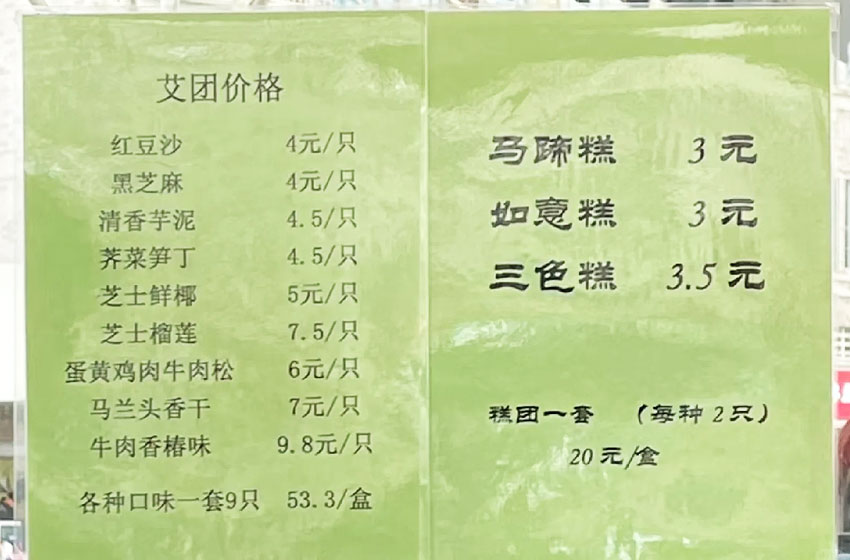 艾团价格
红豆沙 4元/只
黑芝麻 4元/只
清香芋泥 4.5/只
荠菜笋丁 4.5/只
芝士鲜椰 5元/只
芝士榴莲 7.5/只
蛋黄鸡肉牛肉松 6元/只
马兰头香干 7元/只
牛肉香椿味 9.8元/只
各种口味一套9只 53.3/盒
马蹄糕 3元
如意糕 3元
三色糕 3.5元
糕团一套 (每种2只)
20元/盒